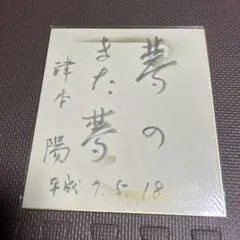 夢の
また夢
津本 陽
平成 7.5.18